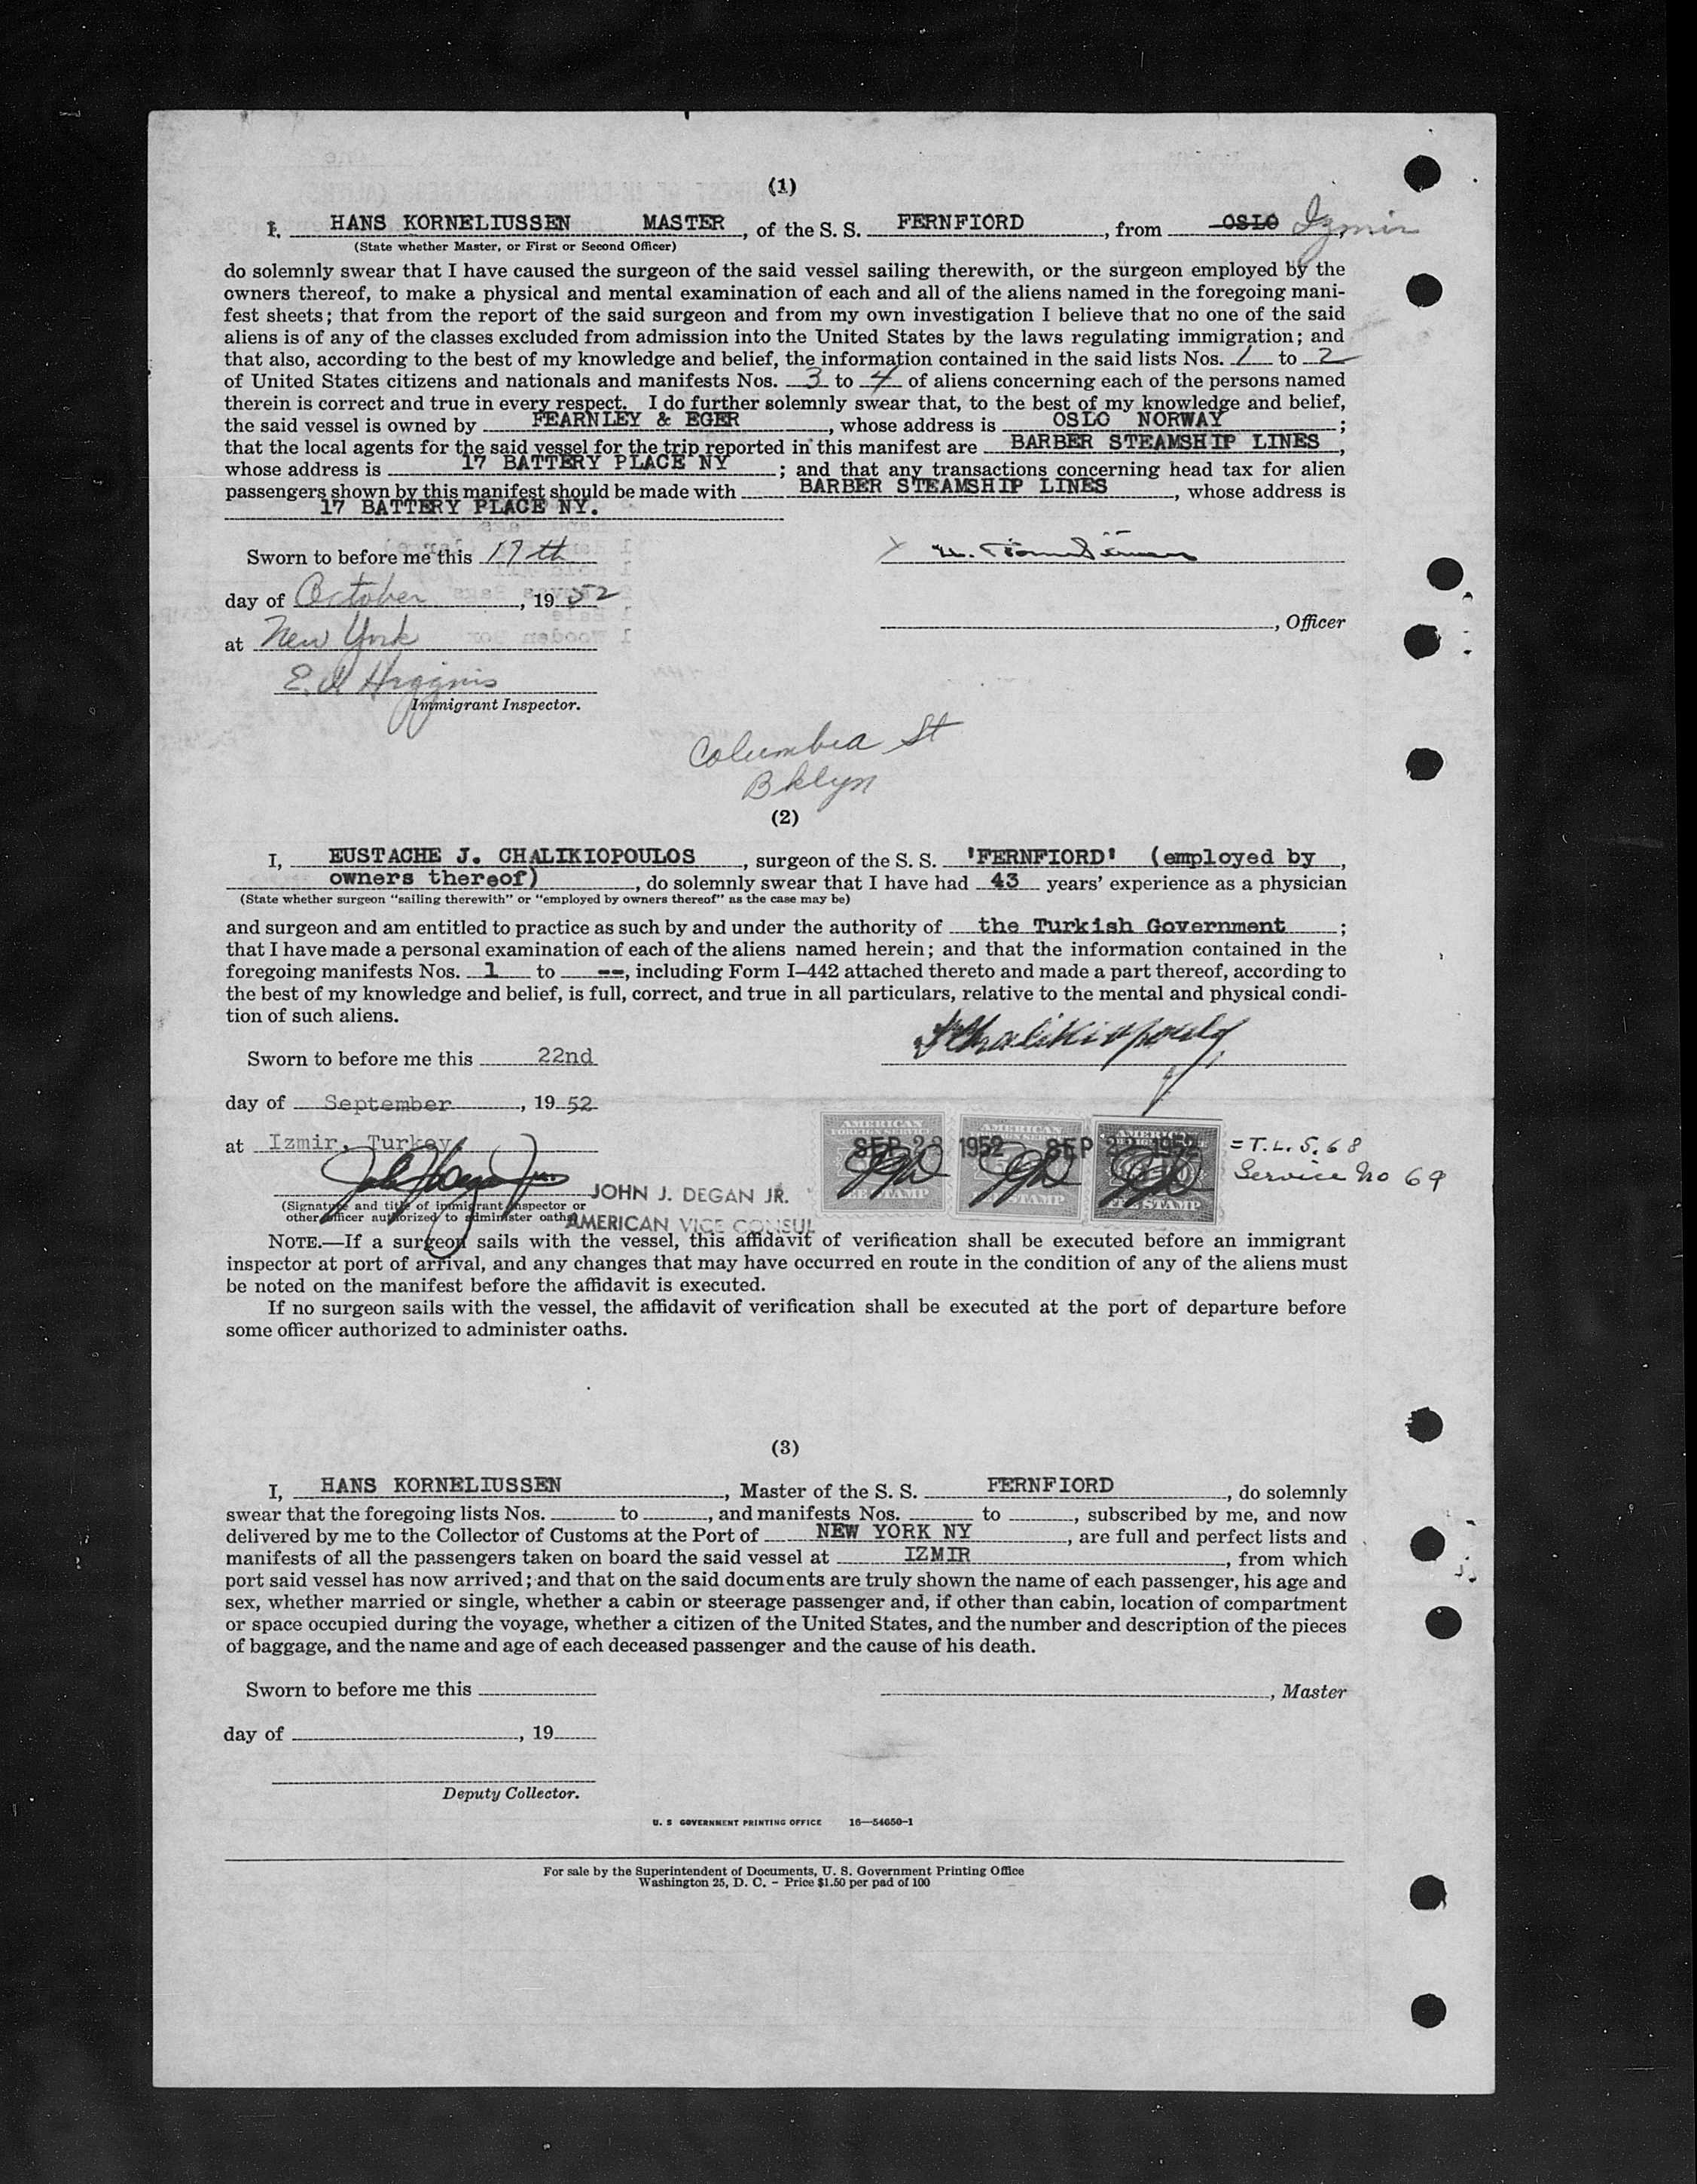 (1)
I, HANS KORNELIUSSEN MASTER, of the S. S. FERNFIORD, from OSLO Izmir,
(State whether Master, or First or Second Officer)
do solemnly swear that I have caused the surgeon of the said vessel sailing therewith, or the surgeon employed by the
owners thereof, to make a physical and mental examination of each and all of the aliens named in the foregoing mani-
fest sheets; that from the report of the said surgeon and from my own investigation I believe that no one of the said
aliens is of any of the classes excluded from admission into the United States by the laws regulating immigration; and
that also, according to the best of my knowledge and belief, the information contained in the said lists Nos. 1 to 2
of United States citizens and nationals and manifests Nos. 3 to 4 of aliens concerning each of the persons named
therein is correct and true in every respect. I do further solemnly swear that, to the best of my knowledge and belief,
the said vessel is owned by FEARNLEY & EGER, whose address is OSLO NORWAY;
that the local agents for the said vessel for the trip reported in this manifest are BARBER STEAMSHIP LINES,
whose address is 17 BATTERY PLACE NY; and that any transactions concerning head tax for alien
passengers shown by this manifest should be made with BARBER STEAMSHIP LINES, whose address is
17 BATTERY PLACE NY.
Sworn to before me this 17th
day of October, 1952
, Officer
at New York
E. Higgins
Immigrant Inspector.
Columbia St
Bklyn
(2)
I, EUSTACHE J. CHALIKIOPOULOS, surgeon of the S. S. 'FERNFIORD' (employed by,
owners thereof), do solemnly swear that I have had 43 years' experience as a physician
(State whether surgeon "sailing therewith" or "employed by owners thereof" as the case may be)
and surgeon and am entitled to practice as such by and under the authority of the Turkish Government;
that I have made a personal examination of each of the aliens named herein; and that the information contained in the
foregoing manifests Nos. 1 to --, including Form I-442 attached thereto and made a part thereof, according to
the best of my knowledge and belief, is full, correct, and true in all particulars, relative to the mental and physical condi-
tion of such aliens.
Sworn to before me this 22nd
day of September, 1952
at Izmir, Turkey
AMERICAN FOREIGN SERVICE FEE STAMP
SEP 22 1952 SEP 22 1952
= T.L. 5.68
Service No 69
JOHN J. DEGAN JR.
(Signature and title of immigrant inspector or
other officer authorized to administer oaths)
AMERICAN VICE CONSUL
NOTE.—If a surgeon sails with the vessel, this affidavit of verification shall be executed before an immigrant
inspector at port of arrival, and any changes that may have occurred en route in the condition of any of the aliens must
be noted on the manifest before the affidavit is executed.
If no surgeon sails with the vessel, the affidavit of verification shall be executed at the port of departure before
some officer authorized to administer oaths.
(3)
I, HANS KORNELIUSSEN, Master of the S. S. FERNFIORD, do solemnly
swear that the foregoing lists Nos. to , and manifests Nos. to , subscribed by me, and now
delivered by me to the Collector of Customs at the Port of NEW YORK NY, are full and perfect lists and
manifests of all the passengers taken on board the said vessel at IZMIR, from which
port said vessel has now arrived; and that on the said documents are truly shown the name of each passenger, his age and
sex, whether married or single, whether a cabin or steerage passenger and, if other than cabin, location of compartment
or space occupied during the voyage, whether a citizen of the United States, and the number and description of the pieces
of baggage, and the name and age of each deceased passenger and the cause of his death.
Sworn to before me this
, Master
day of , 19
Deputy Collector.
U. S GOVERNMENT PRINTING OFFICE 16—54650-1
For sale by the Superintendent of Documents, U. S. Government Printing Office
Washington 25, D. C. - Price $1.50 per pad of 100